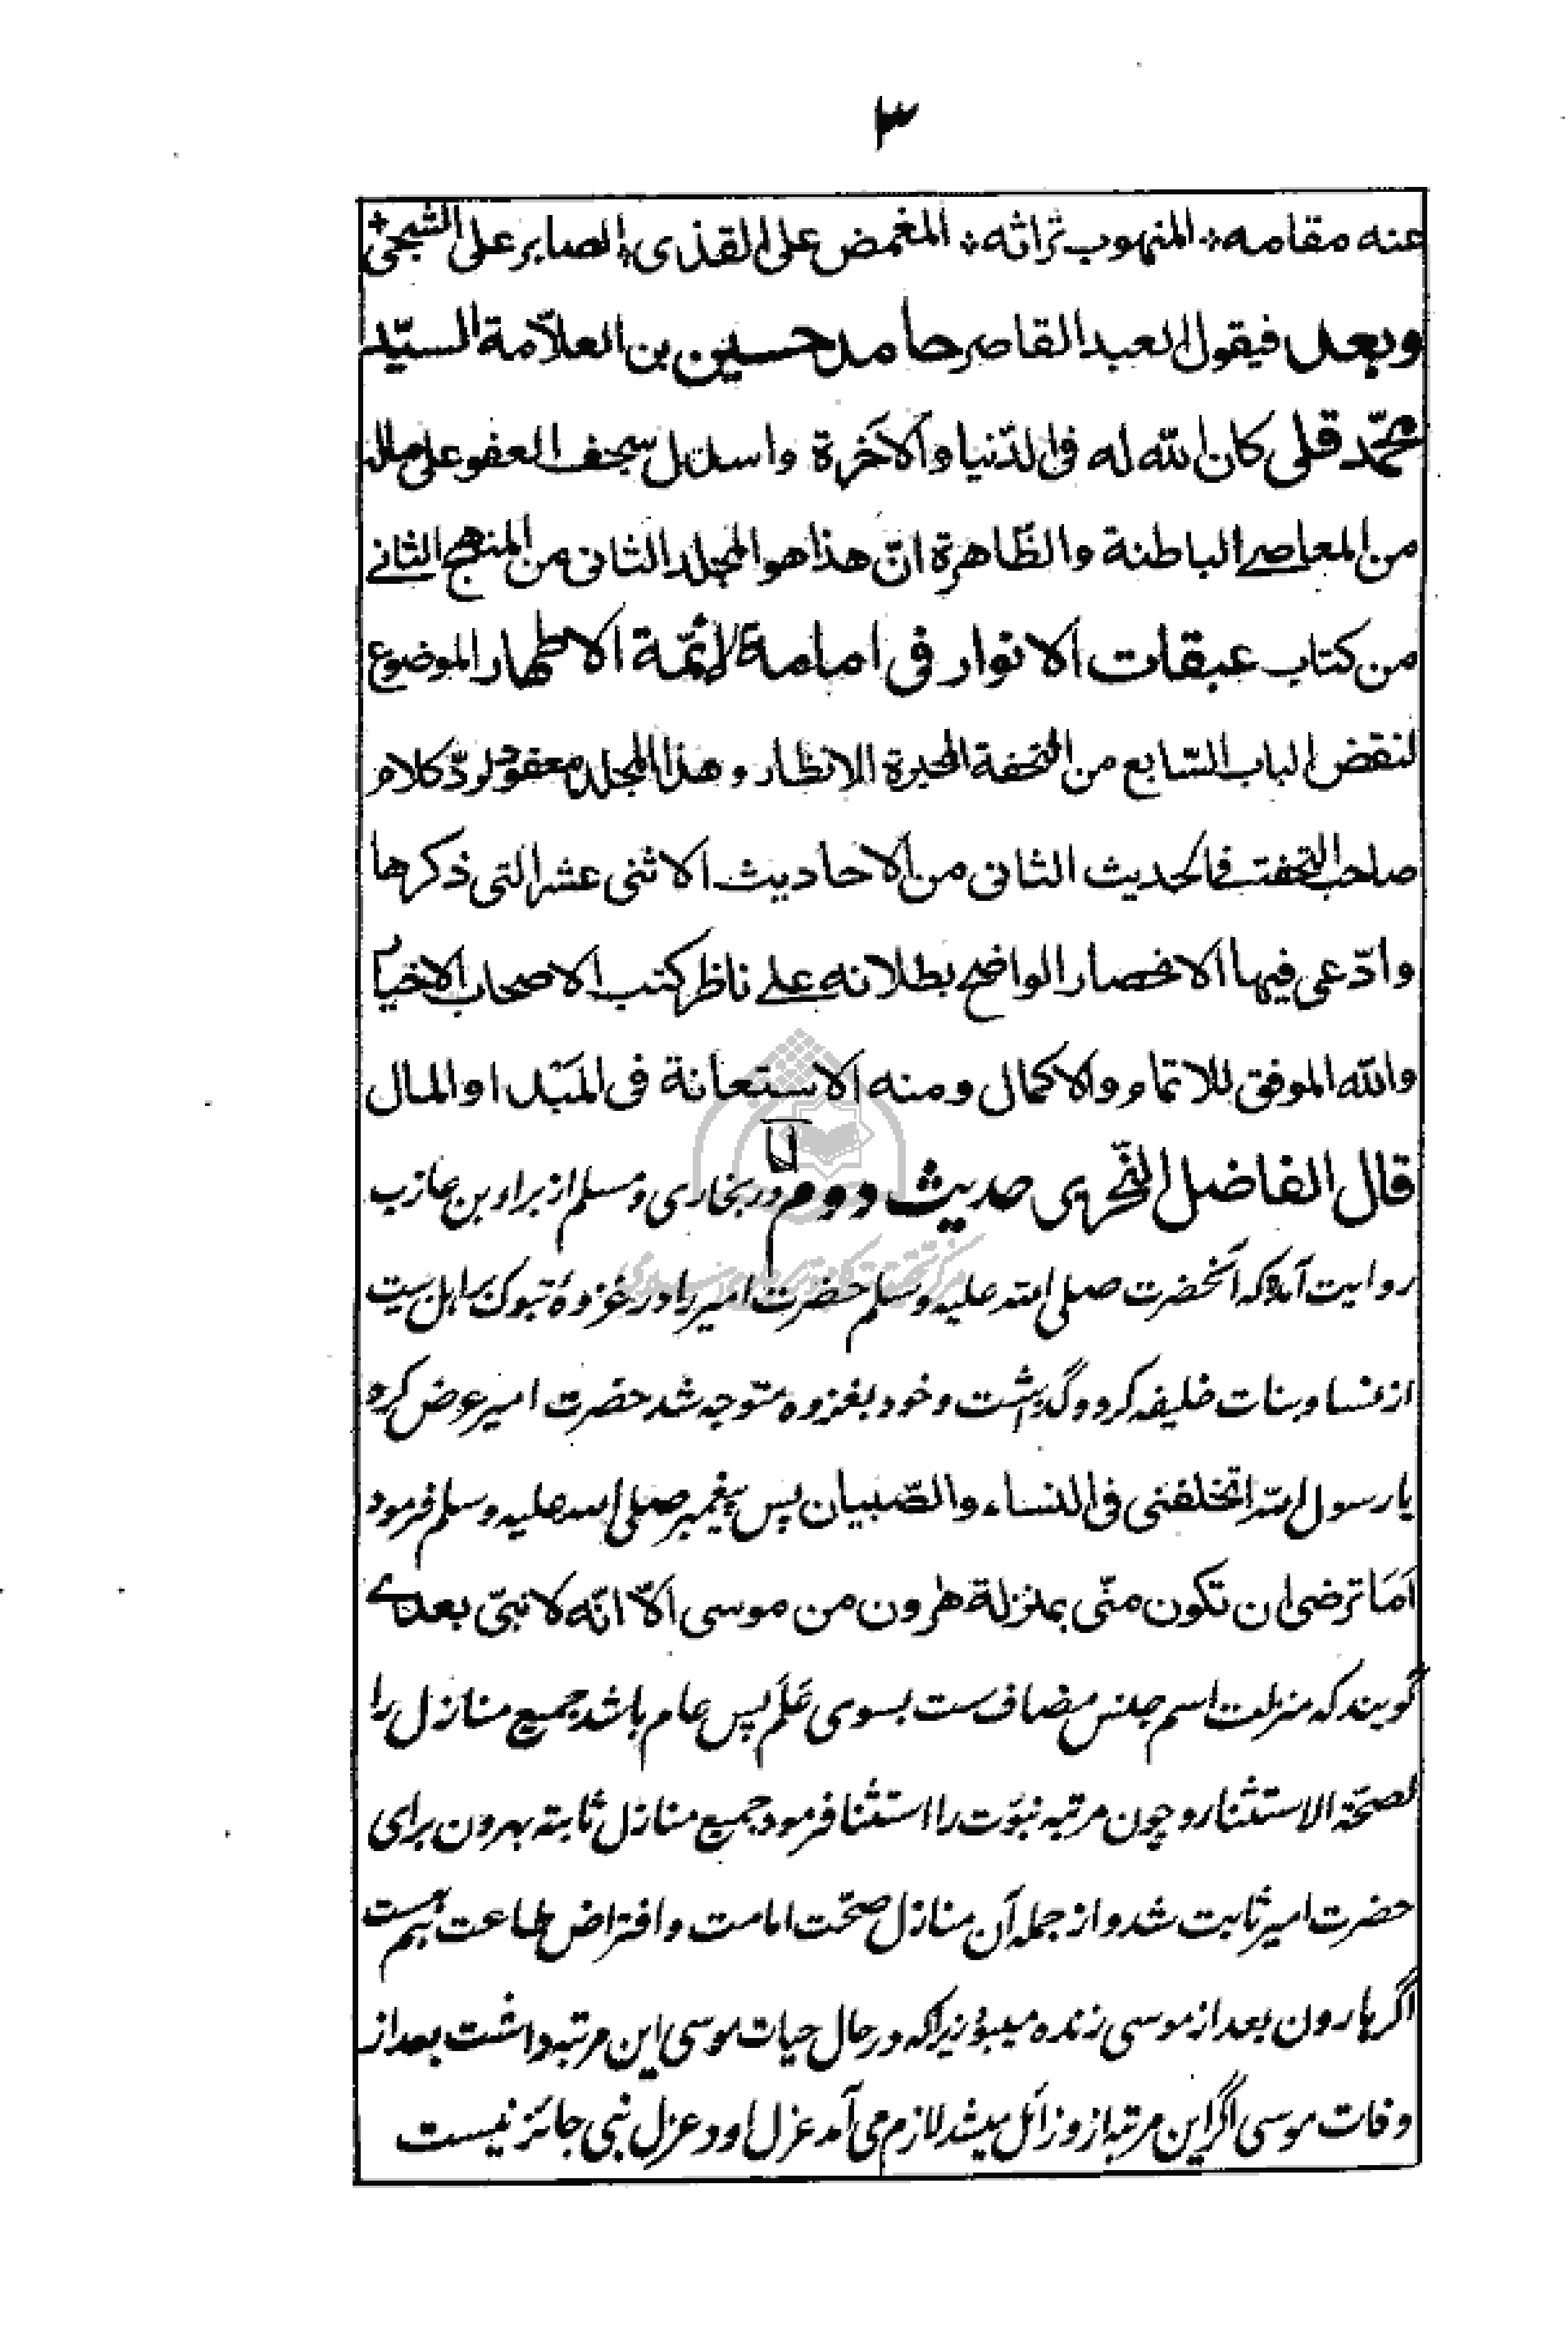 ٣
عنه مقامه ؞ المنهوب تراثه ؞ المغمض علی القذی ؞ الصابر علی الشجی ؞
وبعد فیقول العبد القاصر حامد حسین بن العلّامة السیّد
محمّد قلی کان الله له فی الدّنیا والآخرة واسدل سجف العفو علی ماله
من المعاصے الباطنة والظّاهرة انّ هذا هو المجلد الثانی من المنهج الثانے
من کتاب عبقات الانوار فی امامة الائمّة الاطهار الموضوع
لنقض الباب السّابع من التحفة المحیرة الانظار وهذا المجلد معقود لردّ کلام
صاحب التحفة فی الحدیث الثانی من الاحادیث الاثنی عشر التی ذکرها
وادّعی فیها الانحصار الواضح بطلانه علے ناظر کتب الاصحاب الاخیار
والله الموفق للاتمام والاکمال ومنه الاستعانة فی المَبْدا والمال
قال الفاضل النّحریر حدیث دوم در بخاری ومسلم از براء بن عازب
روایت آمده که آنحضرت صلی الله علیه وسلم حضرت امیر را در غزوهٔ تبوک بر اهل بیت
از نسا وبنات خلیفه کرد وگذاشت وخود بغزوه متوجه شد حضرت امیر عرض کرد
یا رسول الله اتخلفنی فی النساء والصّبیان پس پیغمبر صلی الله علیه وسلم فرمود
اَمَا ترضی ان تکون منّی بمنزلة هرون من موسی الّا انّه لا نبیّ بعدے
گویند که منزلت اسم جنس مضاف ست بسوی عَلَم پس عام باشد جمیع منازل را
لصحّة الاستثناء وچون مرتبه نبوّت را استثنا فرمود جمیع منازل ثابته بهرون برای
حضرت امیر ثابت شد واز جمله آن منازل صحّت امامت وافتراض طاعت هم هست
اگر هارون بعد از موسی زنده میبود زیرا که در حال حیات موسی این مرتبه داشت بعد از
وفات موسی اگر این مرتبه ازو زائل میشد لازم می آمد عزل او وعزل نبی جائز نیست